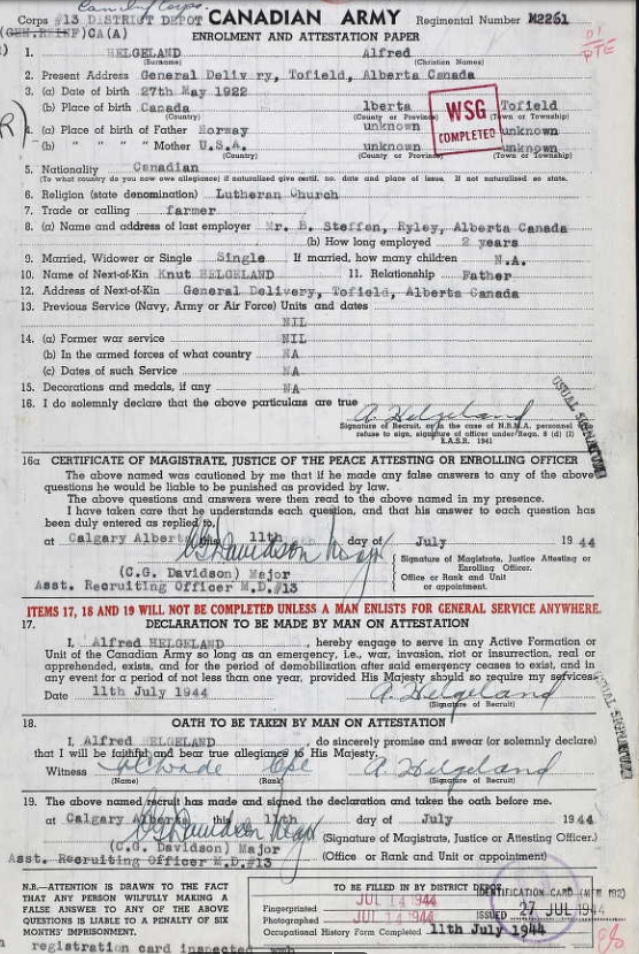 Can Inf Corps.
Corps #13 DISTRICT DEPOT CANADIAN ARMY Regimental Number M2261
(GEN.REINF)CA(A) ENROLMENT AND ATTESTATION PAPER
01
PTE
1. HELGELAND Alfred
(Surname) (Christian Names)
2. Present Address General Deliv ry, Tofield, Alberta Canada
3. (a) Date of birth 27th May 1922
(b) Place of birth Canada lberta Tofield
(Country) (County or Province) (Town or Township)
WSG
COMPLETED
4. (a) Place of birth of Father Norway unknown unknown
(b) " " " " Mother U.S.A. unknown unknown
(Country) (County or Province) (Town or Township)
5. Nationality Canadian
(To what country do you now owe allegiance? if naturalized give certif. no. date and place of issue. If not naturalized so state.
6. Religion (state denomination) Lutheran Church
7. Trade or calling farmer
8. (a) Name and address of last employer Mr. B. Steffen, Ryley, Alberta Canada
(b) How long employed 2 years
9. Married, Widower or Single Single If married, how many children N.A.
10. Name of Next-of-Kin Knut HELGELAND 11. Relationship Father
12. Address of Next-of-Kin General Delivery, Tofield, Alberta Canada
13. Previous Service (Navy, Army or Air Force) Units and dates
NIL
14. (a) Former war service NIL
(b) In the armed forces of what country NA
(c) Dates of such Service NA
15. Decorations and medals, if any NA
16. I do solemnly declare that the above particulars are true
A. Helgeland
Signature of Recruit, or in the case of N.R.M.A. personnel who
refuse to sign, signature of officer under Regn. 8 (d) (2)
R.A.S.R. 1941
USUAL SIGNATURE
16a CERTIFICATE OF MAGISTRATE, JUSTICE OF THE PEACE ATTESTING OR ENROLLING OFFICER
The above named was cautioned by me that if he made any false answers to any of the above
questions he would be liable to be punished as provided by law.
The above questions and answers were then read to the above named in my presence.
I have taken care that he understands each question, and that his answer to each question has
been duly entered as replied to,
at Calgary Albert this 11th day of July 1944
CG Davidson Major
Signature of Magistrate, Justice Attesting or
Enrolling Officer.
(C.G. Davidson) Major Office or Rank and Unit
Asst. Recruiting Officer M.D.#13 or appointment.
ITEMS 17, 18 AND 19 WILL NOT BE COMPLETED UNLESS A MAN ENLISTS FOR GENERAL SERVICE ANYWHERE.
17. DECLARATION TO BE MADE BY MAN ON ATTESTATION
I, Alfred HELGELAND, hereby engage to serve in any Active Formation or
Unit of the Canadian Army so long as an emergency, i.e., war, invasion, riot or insurrection, real or
apprehended, exists, and for the period of demobilization after said emergency ceases to exist, and in
any event for a period of not less than one year, provided His Majesty should so require my services.
Date 11th July 1944 A. Helgeland
(Signature of Recruit)
USUAL SIGNATURE
18. OATH TO BE TAKEN BY MAN ON ATTESTATION
I, Alfred HELGELAND, do sincerely promise and swear (or solemnly declare)
that I will be faithful and bear true allegiance to His Majesty.
Witness Wade Cpl A. Helgeland
(Name) (Rank) (Signature of Recruit)
19. The above named recruit has made and signed the declaration and taken the oath before me.
at Calgary Albert this 11th day of July 1944
CG Davidson Major (Signature of Magistrate, Justice or Attesting Officer.)
(C.G. Davidson) Major
Asst. Recruiting Officer M.D.#13 (Office or Rank and Unit or appointment)
N.B.—ATTENTION IS DRAWN TO THE FACT
THAT ANY PERSON WILFULLY MAKING A
FALSE ANSWER TO ANY OF THE ABOVE
QUESTIONS IS LIABLE TO A PENALTY OF SIX
MONTHS' IMPRISONMENT.
TO BE FILLED IN BY DISTRICT DEPOT
IDENTIFICATION CARD (MFM 182)
Fingerprinted JUL 14 1944
Photographed JUL 14 1944 ISSUED 27 JUL 1944
Occupational History Form Completed 11th July 1944
registration card inspected